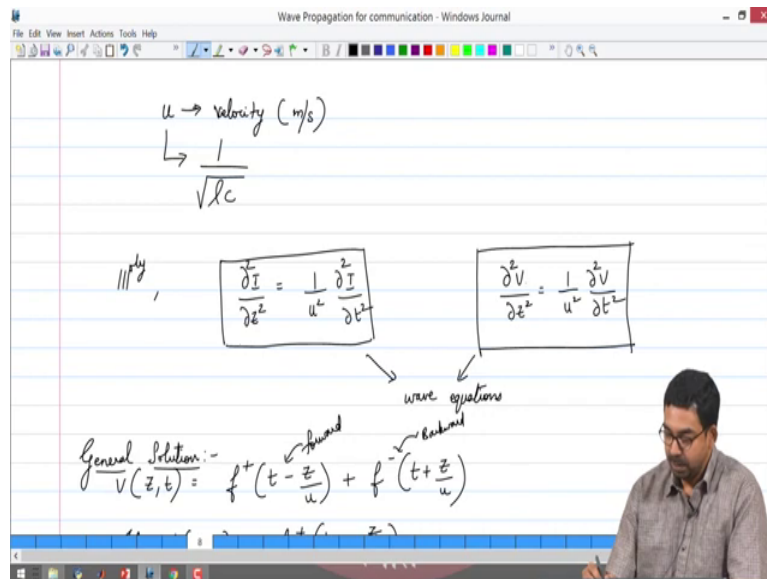 Wave Propagation for communication - Windows Journal
File Edit View Insert Actions Tools Help
B I
u → velocity (m/s)
↳ 1/√lc
|||ply, ∂²I/∂z² = 1/u² ∂²I/∂t² ∂²V/∂z² = 1/u² ∂²V/∂t²
wave equations
forward Backward
General Solution:-
V(z,t) = f⁺(t - z/u) + f⁻(t + z/u)
8